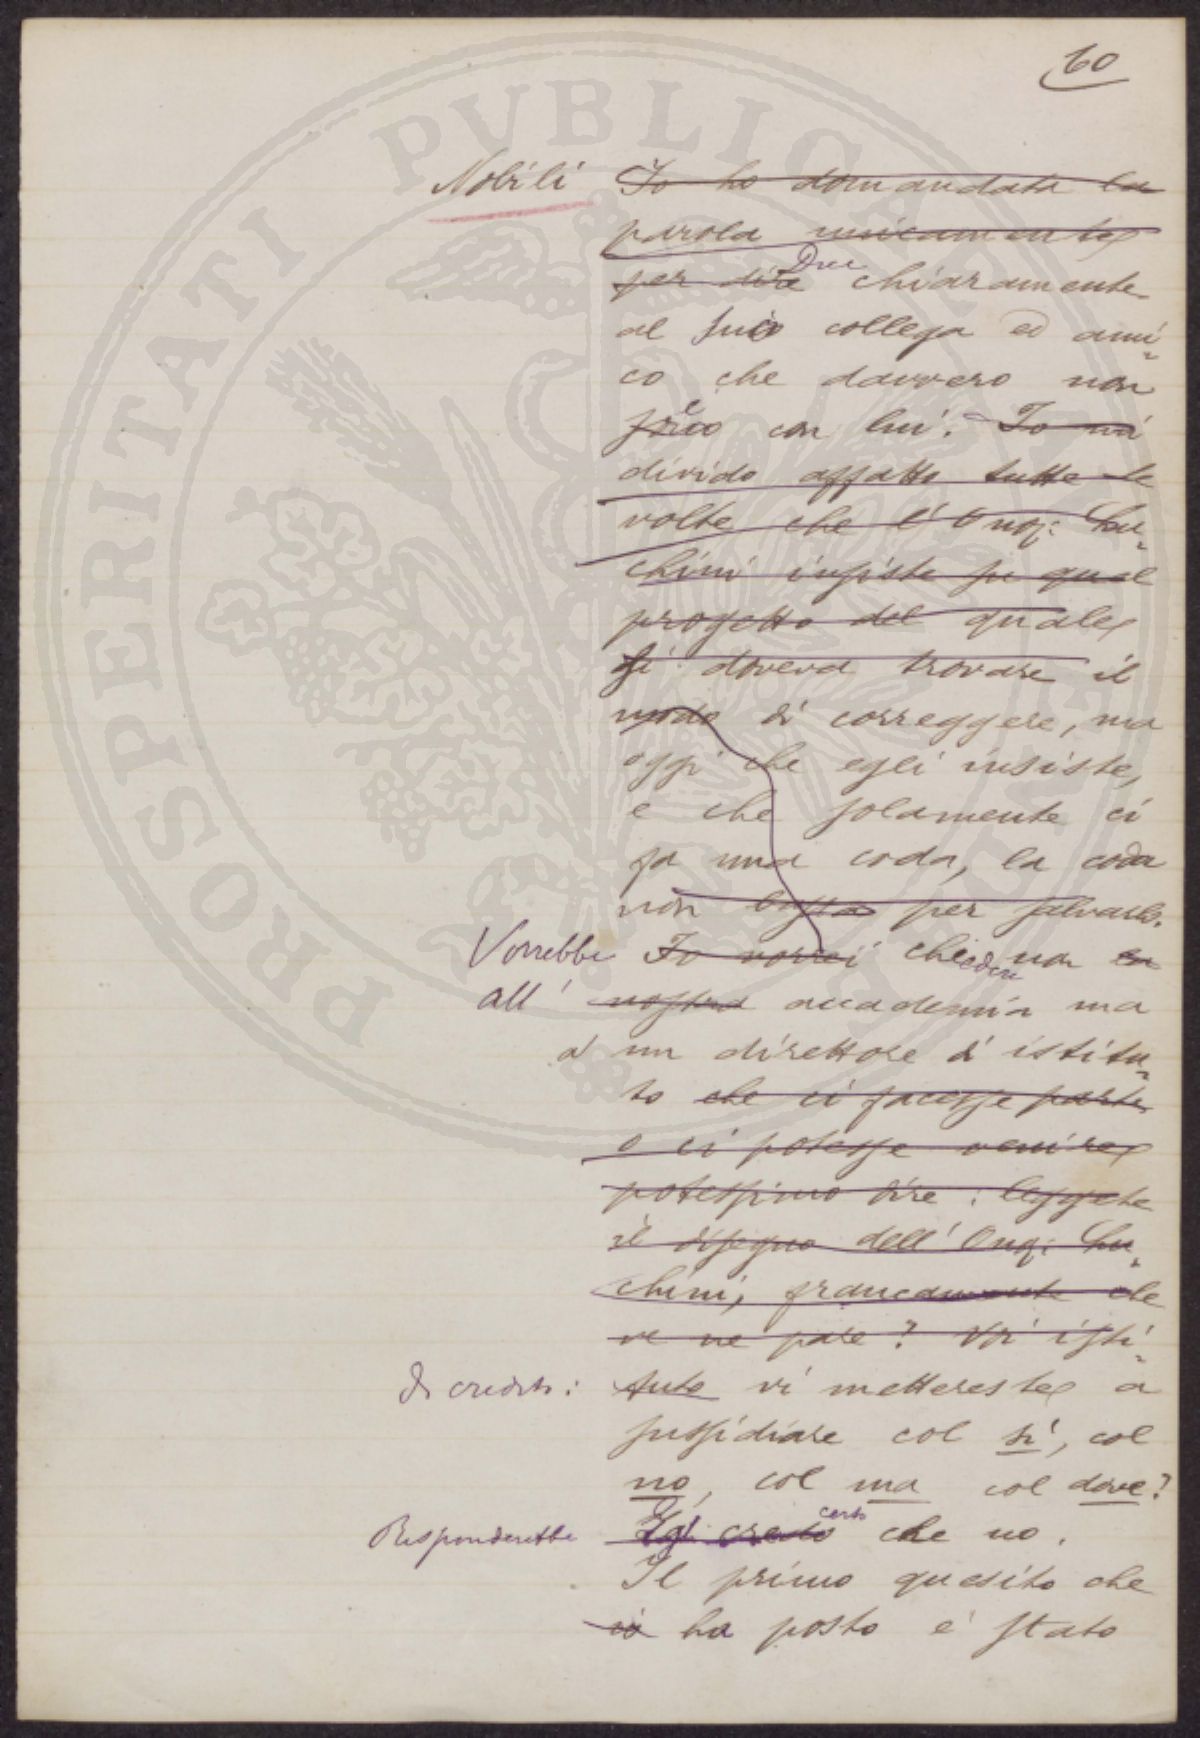 60
Nobili Io ho domandata la
parola unicamente
per dire Dice chiaramente
al suo collega ed ami-
co che davvero non
è con lui. Io mi
divido affatto tutte le
volte che l'Onor: Lu-
chini insiste su quel
progetto del quale
si doveva trovare il
modo di correggere, ma
oggi che egli insiste,
e che solamente ci
fa una coda, la coda
non basta per salvarlo.
Vorrebbe Io vorrei chiedere non la
all' nostra accademia ma
a un direttore di istitu-
to che ci facesse parte
o ci potesse venire
potessimo dire: leggete
il disegno dell'Onor: Lu-
chini, francamente che
ve ne pare? Voi isti-
di credito: tuto vi mettereste a
sussidiare col si, col
no, col ma col dove?
Risponderebbe Egli credo certo che no.
Il primo quesito che
io ha posto è stato
PROSPERITATI PUBLICAE